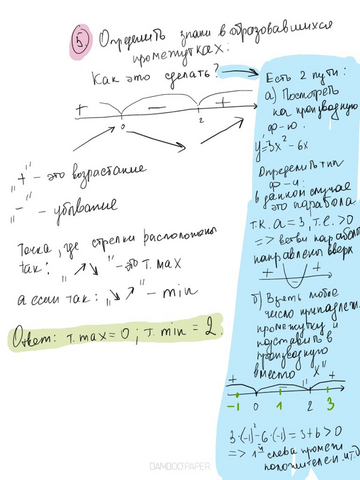 5. Определить знаки в образовавшихся
промежутках:
Как это сделать?
+ − +
0 2
"+" - это возрастание
"-" - убывание
Точка, где стрелки расположены
так: "↗ ↘" - это т. max
а если так: "↘ ↗" - min
Ответ: т. max = 0; т. min = 2
Есть 2 пути:
а) Посмотреть
на производную
ф-ю.
y'=3x²-6x
Определить тип
ф-и:
в данном случае
это парабола
т.к. a = 3, т.е. >0
=> ветви параболы
направлены вверх
+ - +
б) Взять любое
число принадлеж.
промежутку и
подставить в
производную
вместо "x"
+ - +
-1 0 1 2 3
3·(-1)²-6·(-1)=3+6>0
=> 1й слева промеж.
положителен и т.д
BAMBOO PAPER